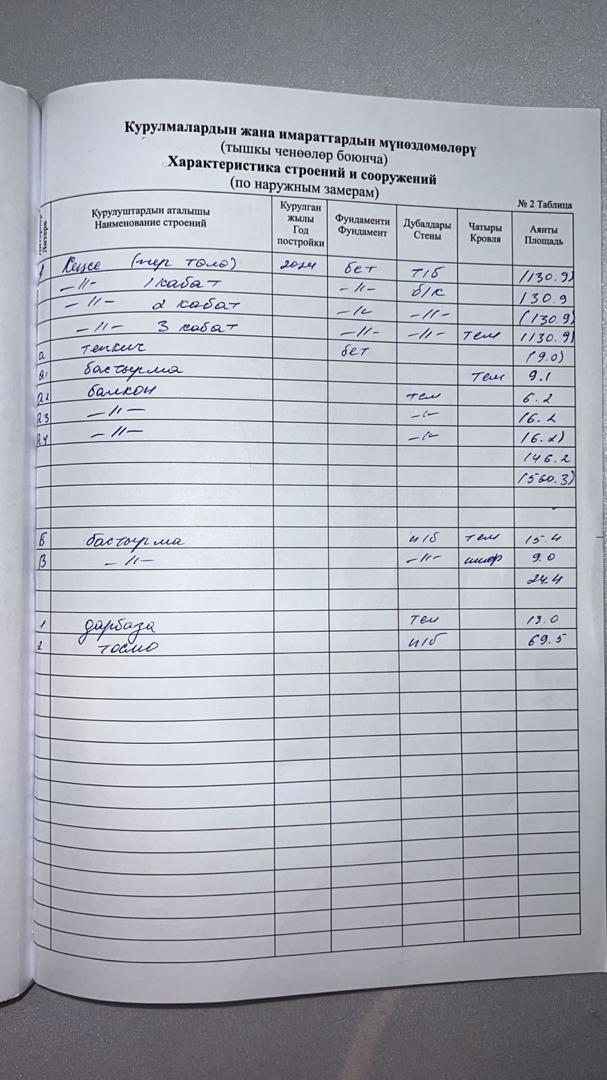 Курулмалардын жана имараттардын мүнөздөмөлөрү
(тышкы ченөөлөр боюнча)
Характеристика строений и сооружений
(по наружным замерам)
№ 2 Таблица
Литера Курулуштардын аталышы Наименование строений Курулган жылы Год постройки Фундаменти Фундамент Дубалдары Стены Чатыры Кровля Аянты Площадь
Кеңсе (жер төлө) 2024 бет т/б (130.9)
–//– 1 кабат –//– б/к 130.9
–//– 2 кабат –//– –//– (130.9)
–//– 3 кабат –//– –//– тем (130.9)
а тепкич бет (9.0)
а1 бастырма тем 9.1
а2 балкон тем 6.2
а3 –//– –//– (6.2
а4 –//– –//– (6.2)
146.2
(560.3)
Б бастырма и/б тем 15.4
В –//– –//– шифр 9.0
24.4
1 дарбаза тем
2 тосмо и/б 69.5